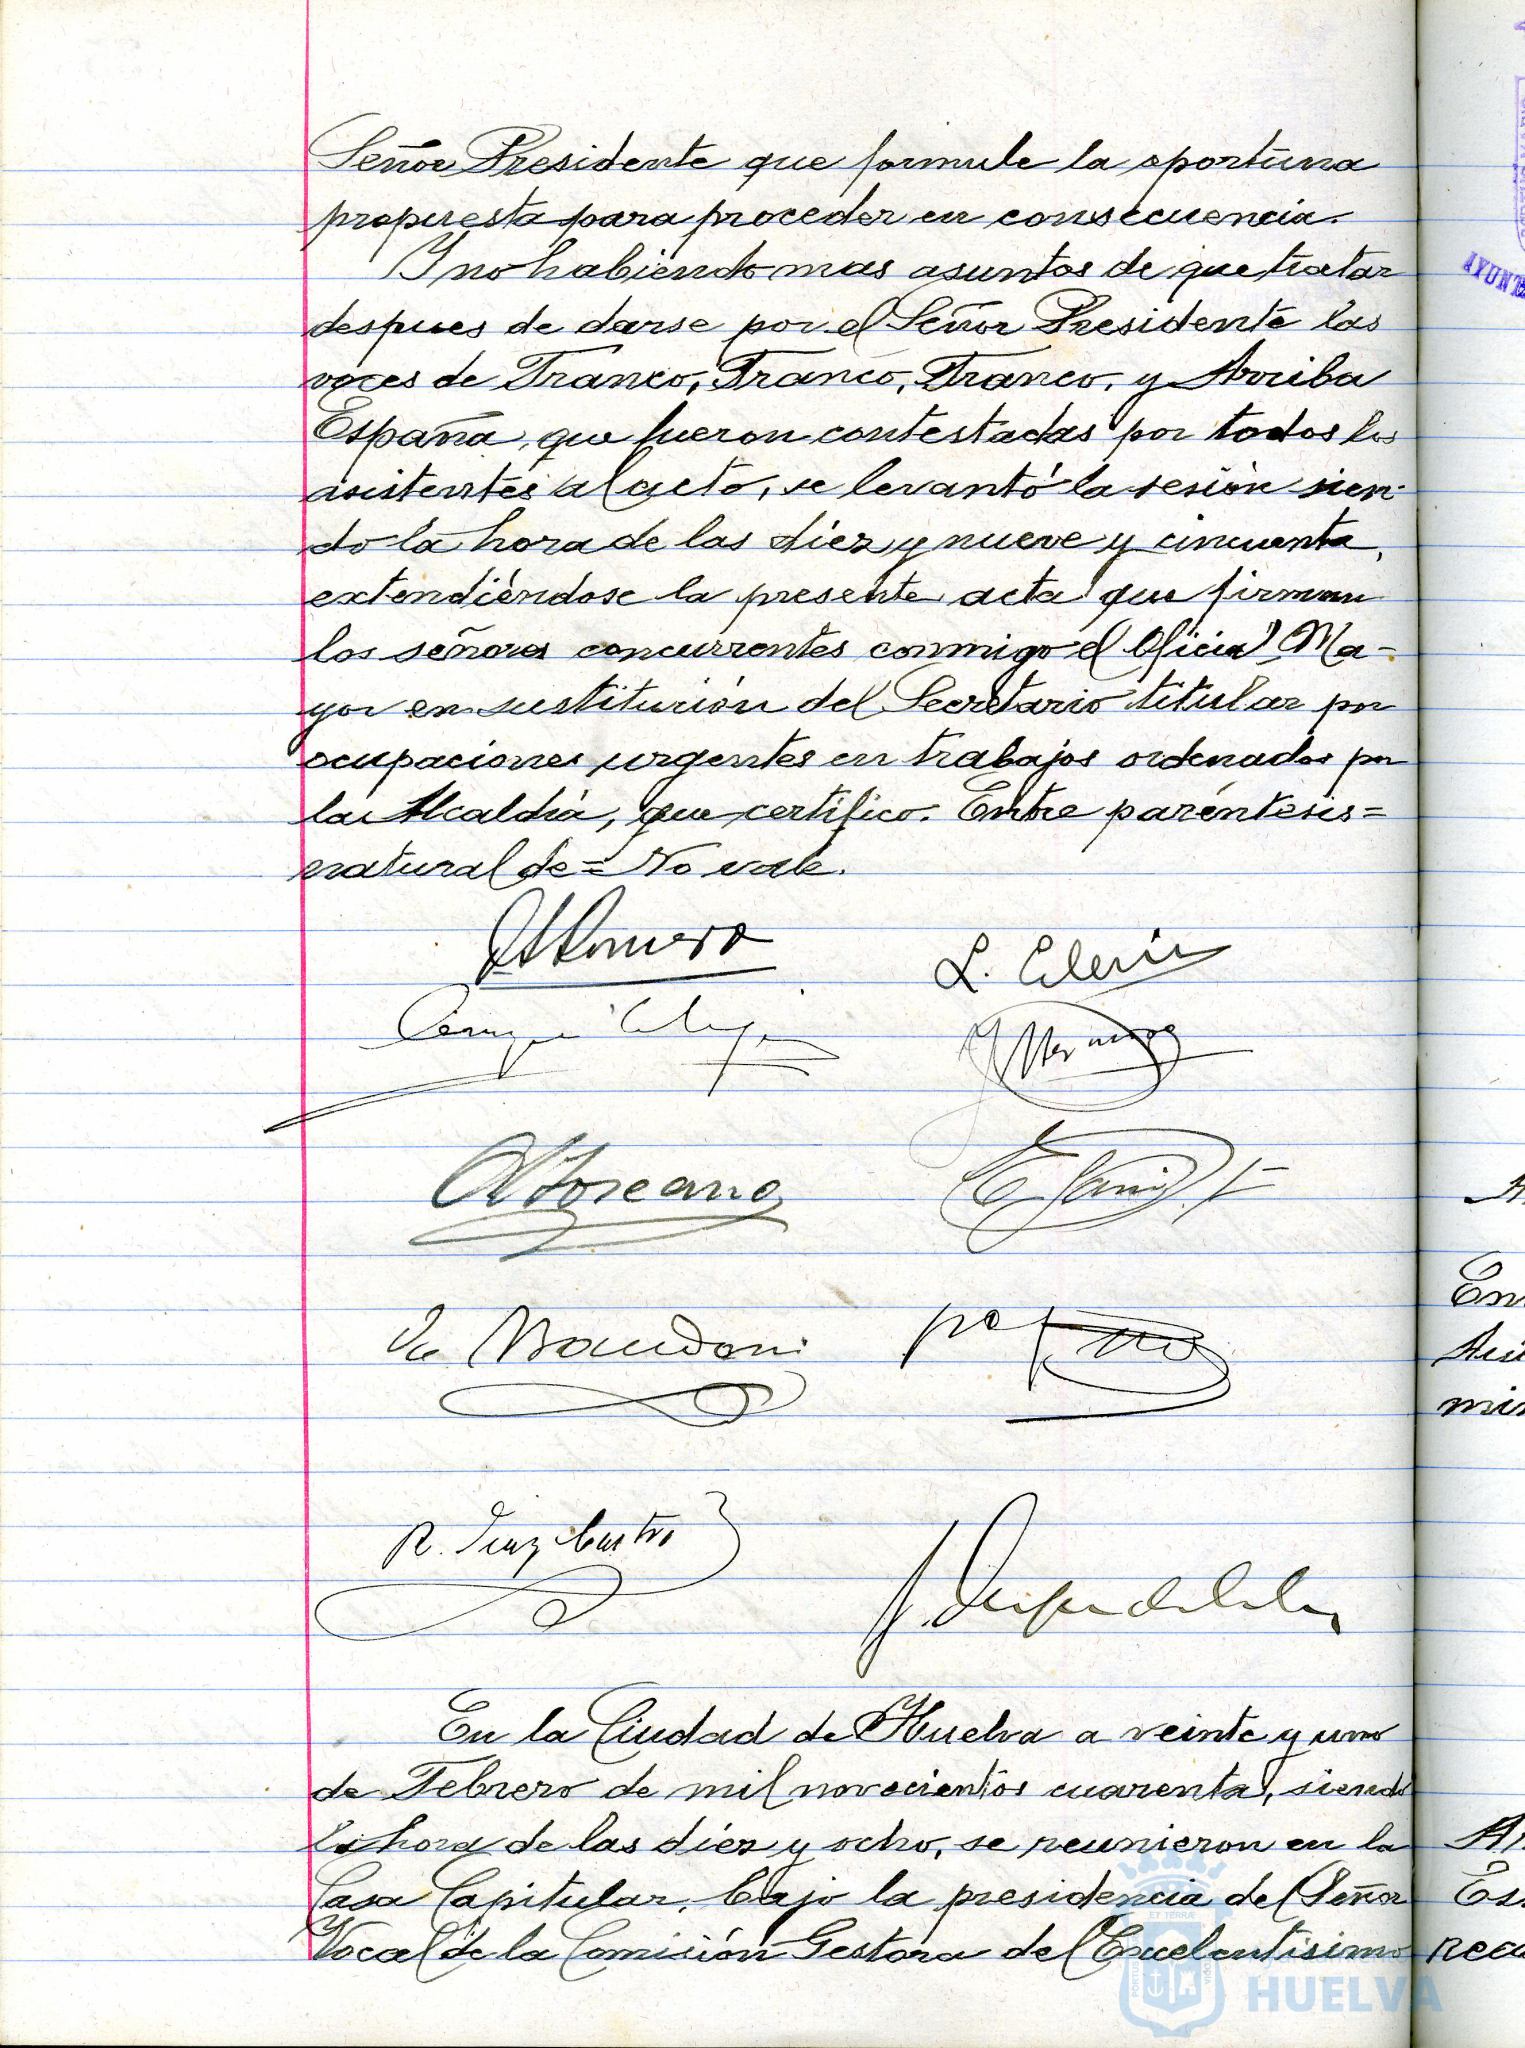 Señor Presidente que formule la oportuna
propuesta para proceder en consecuencia.
Y no habiendo mas asuntos de que tratar
despues de darse por el Señor Presidente las
voces de Franco, Franco, Franco, y Arriba
España, que fueron contestadas por todos los
asistentes al acto, se levantó la sesión sien-
do la hora de las diez y nueve y cincuenta,
extendiéndose la presente acta que firman
los señores concurrentes conmigo el Oficial Ma-
yor en sustitución del Secretario titular por
ocupaciones urgentes en trabajos ordenados por
la Alcaldia, que certifico. Entre paréntesis=
natural de= No vale.
Romero
L.
R. Diaz Castro
En la Ciudad de Huelva a veinte y uno
de Febrero de mil novecientos cuarenta, siendo
la hora de las diez y ocho, se reunieron en la
Casa Capitular, bajo la presidencia del Señor
Vocal de la Comisión Gestora del Excelentisimo
Ayuntamiento
HUELVA
AYUNT
En
Es